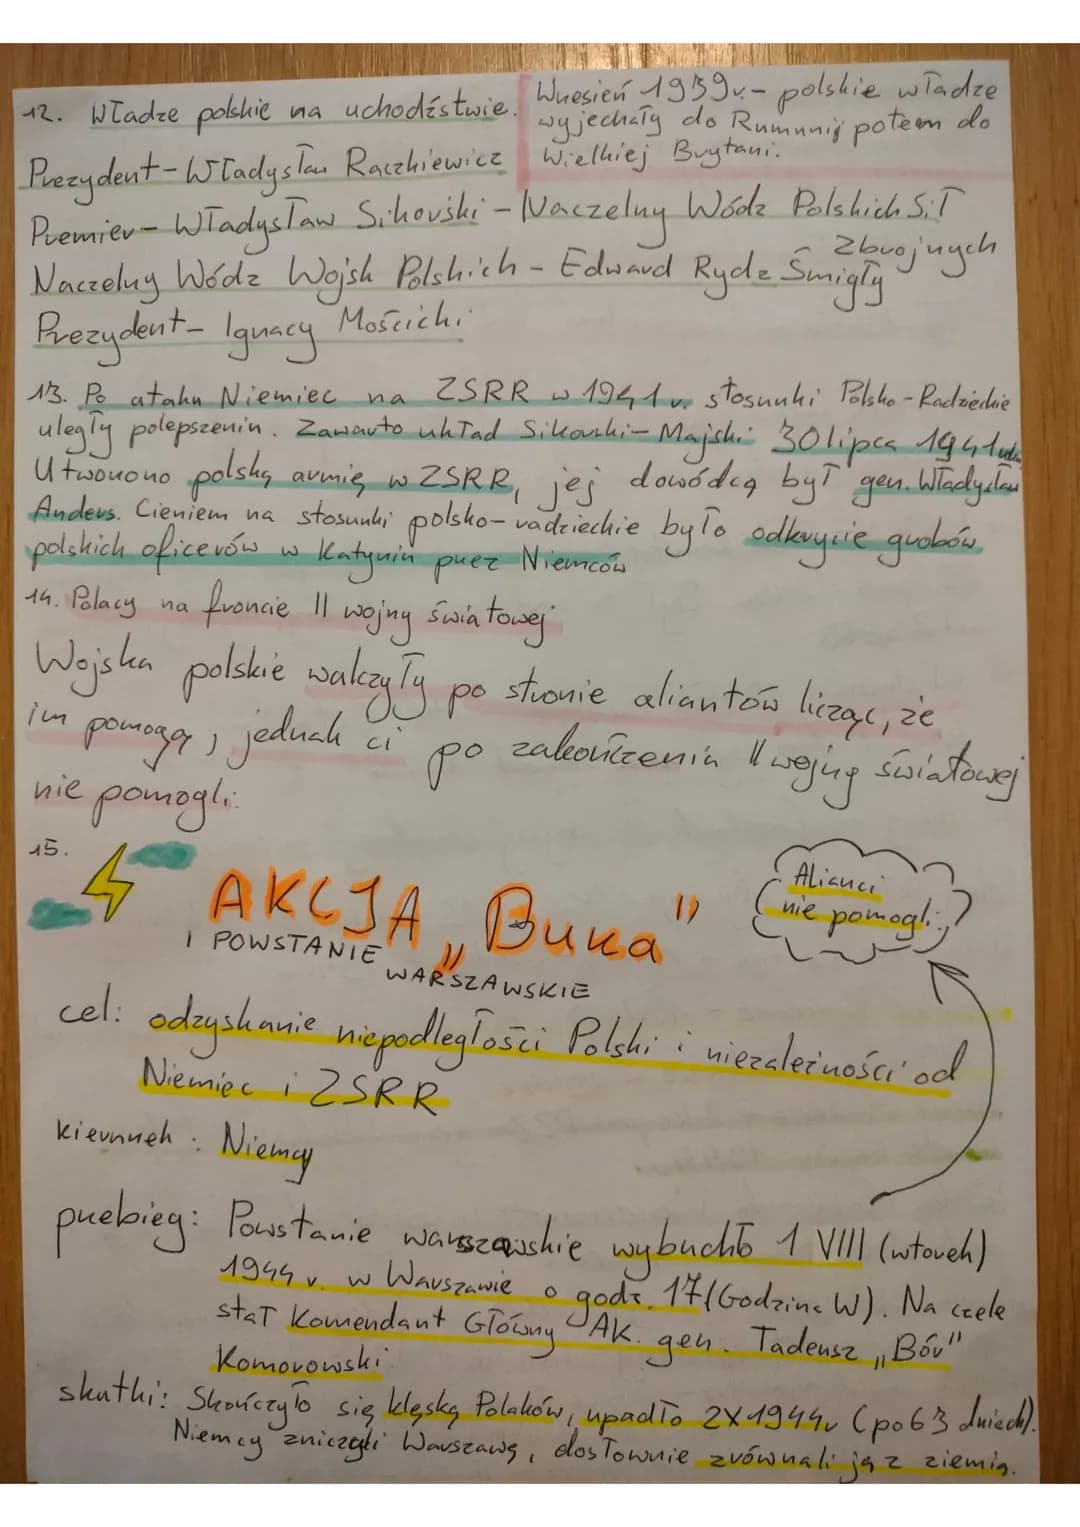 12. Władze polskie na uchodźstwie.
Wrzesień 1939r. - polskie władze
wyjechały do Rumunij potem do
Wielkiej Brytani.
Prezydent - Władysław Raczkiewicz
Premier - Władysław Sikorski - Naczelny Wódz Polskich Sił
Zbrojnych
Naczelny Wódz Wojsk Polskich - Edward Rydz Śmigły
Prezydent - Ignacy Mościcki
13. Po ataku Niemiec na ZSRR w 1941 r. stosunki Polsko - Radzieckie
uległy polepszeniu. Zawarto układ Sikorski - Majski 30 lipca 1941 roku
Utworzono polską armię w ZSRR, jej dowódcą był gen. Władysław
Anders. Cieniem na stosunki polsko-radzieckie było odkrycie grobów
polskich oficerów w Katyniu przez Niemców
14. Polacy na froncie II wojny światowej
Wojska polskie walczyły po stronie aliantów licząc, że
im pomogą, jednak ci po zakończeniu II wojny światowej
nie pomogli.
15.
AKCJA „Burza"
I POWSTANIE WARSZAWSKIE
Alianci
nie pomogli.
cel: odzyskanie niepodległości Polski i niezależności od
Niemiec i ZSRR
kierunek: Niemcy
przebieg: Powstanie warszawskie wybuchło 1 VIII (wtorek)
1944 r. w Warszawie o godz. 17 (Godzina W). Na czele
stał Komendant Główny AK. gen. Tadeusz „Bór"
Komorowski
skutki: Skończyło się klęską Polaków, upadło 2X1944r (po 63 dniach).
Niemcy zniczyli Warszawę, dosłownie zrównali ją z ziemią.